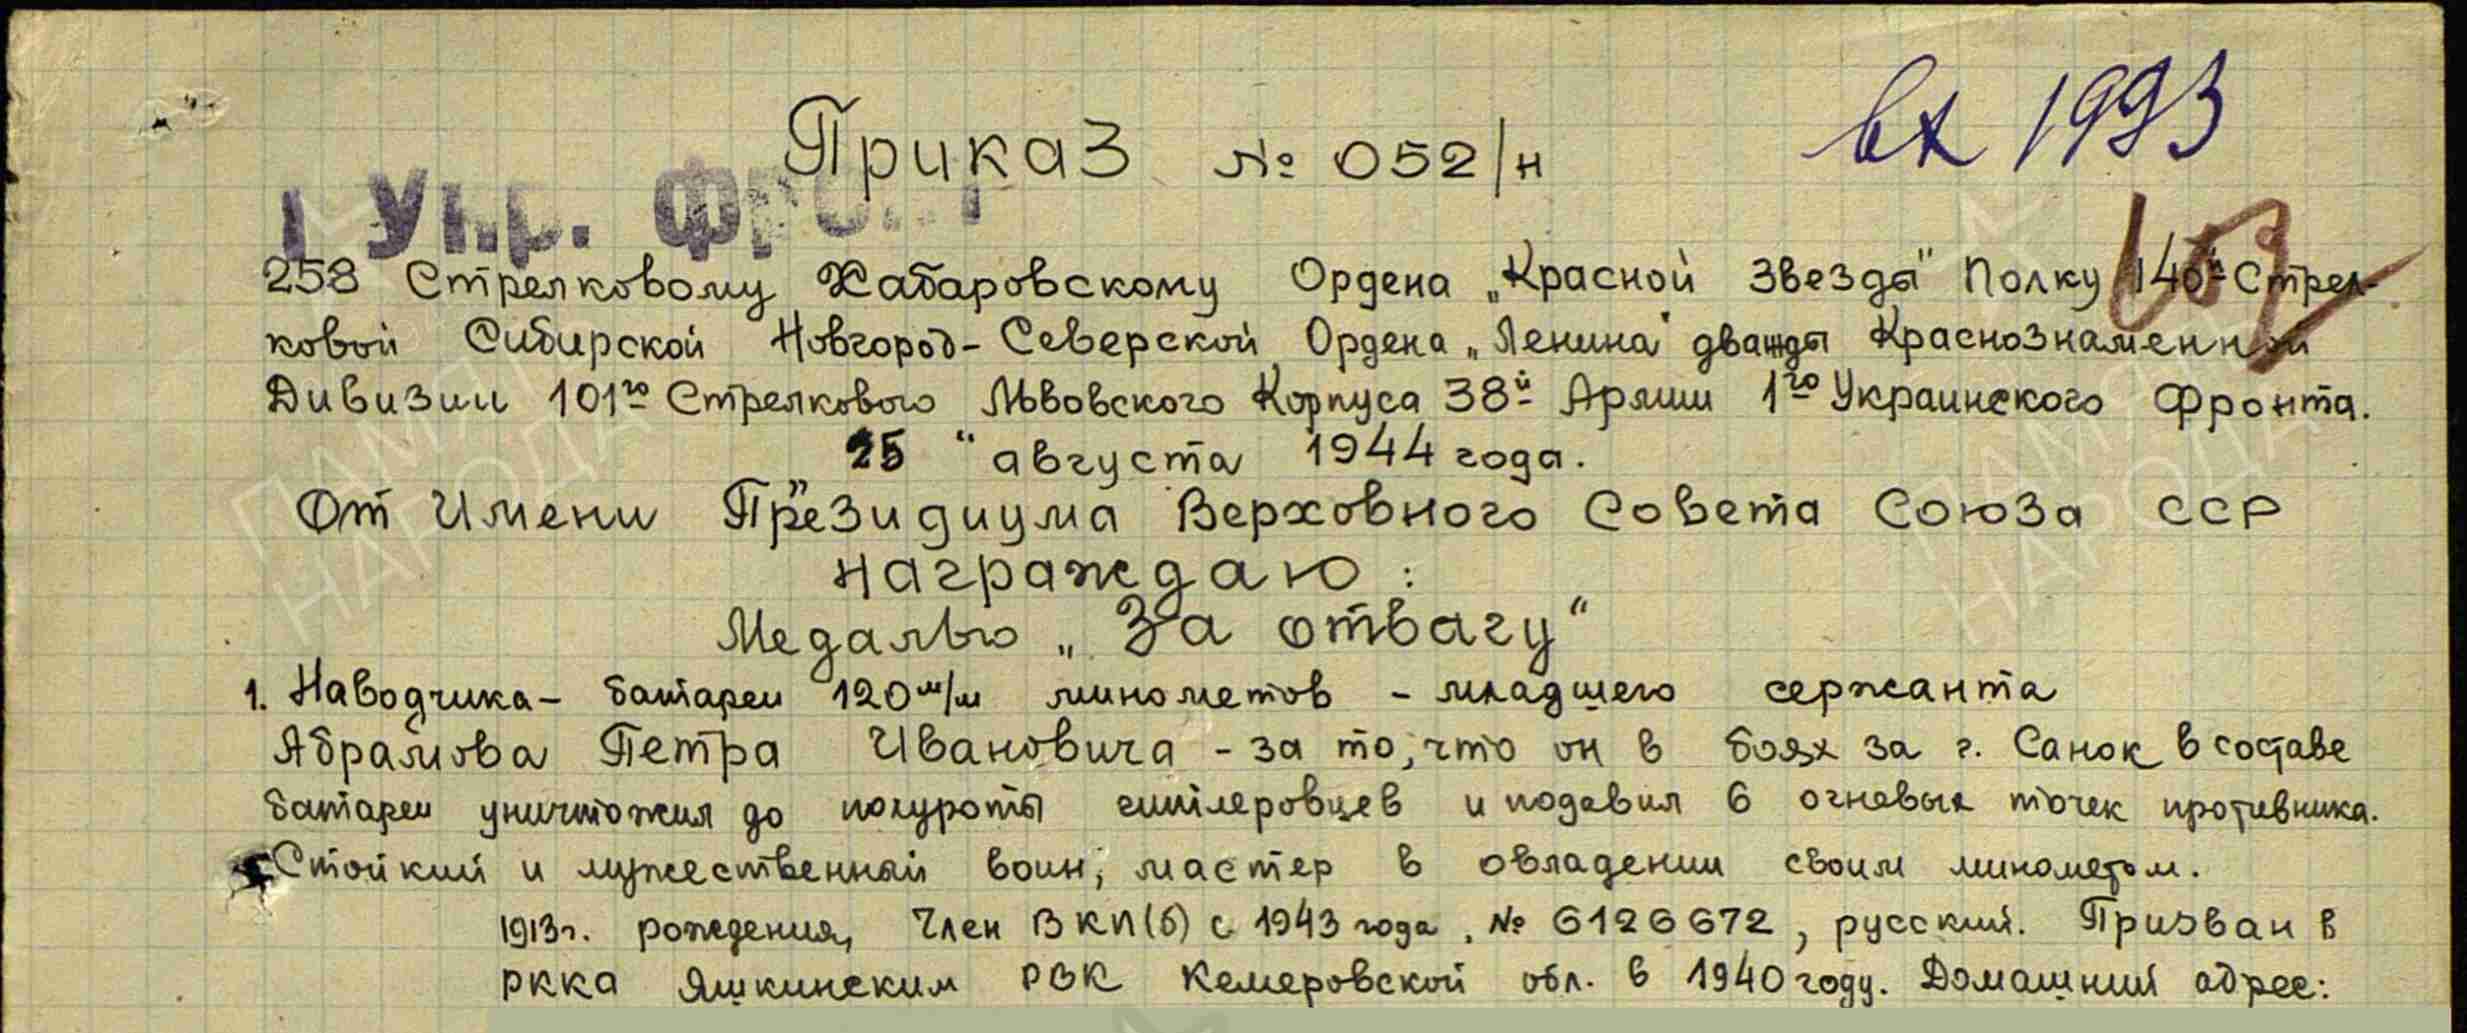 вх 1993
Приказ № 052/н
1 Укр. фронт
258 Стрелковому Хабаровскому Ордена „Красной Звезды" Полку 140й Стрел-
ковой Сибирской Новгород-Северской Ордена „Ленина" дважды Краснознаменной
Дивизии 101го Стрелкового Львовского Корпуса 38й Армии 1го Украинского Фронта.
25 " августа 1944 года.
От Имени Президиума Верховного Совета Союза ССР
Награждаю:
Медалью „За отвагу"
1. Наводчика - батареи 120 м/м минометов - младшего сержанта
Абрамова Петра Ивановича - за то, что он в боях за г. Санок в составе
батареи уничтожил до полуроты гитлеровцев и подавил 6 огневых точек противника.
Стойкий и мужественный воин, мастер в овладении своим минометом.
1913 г. рождения, Член ВКП(б) с 1943 года, № 6126672, русский. Призван в
РККА Яшкинским РВК Кемеровской обл. в 1940 году. Домашний адрес:
ПАМЯТЬ НАРОДА
ПАМЯТЬ НАРОДА